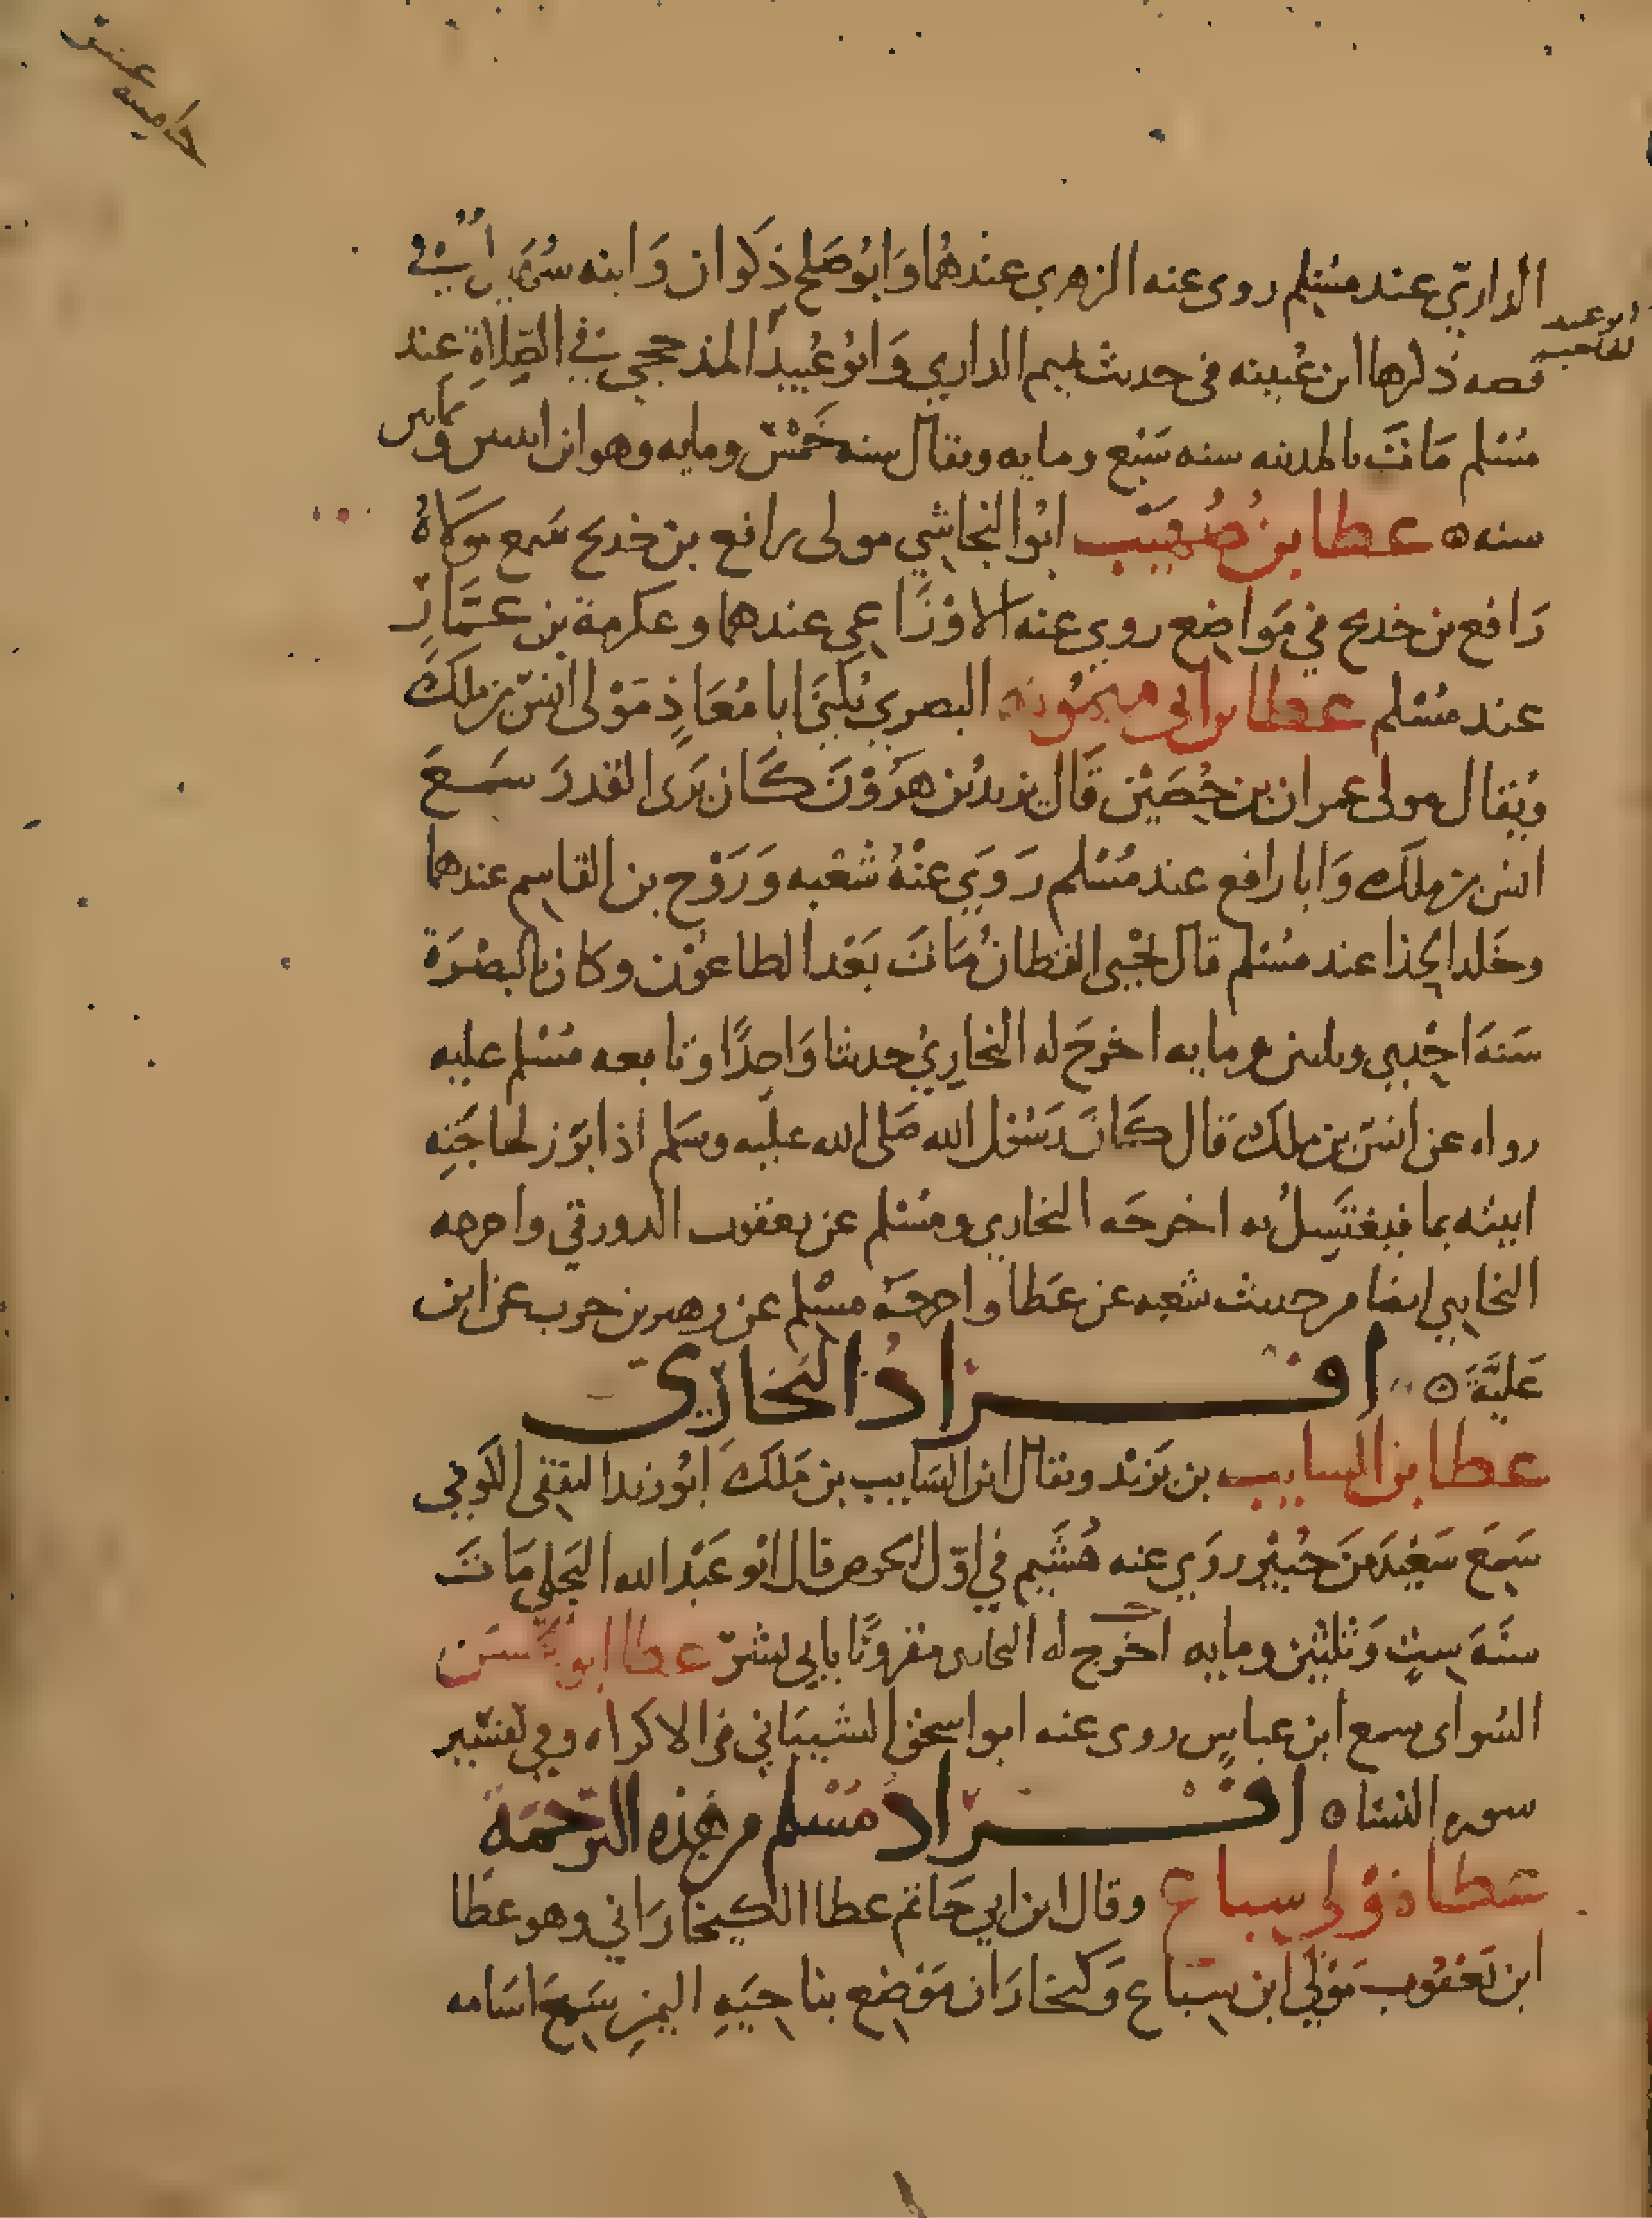 الداريّ عند مسلم روى عنه الزهري عندهما وَابُو صَلح ذكوان وَابنه سُهَيل في
قصه ذكرها ابن عُيينه فى حديث تميم الداري وَابُو عُبيد المذحجي في الصّلاة عند
مسلم مَاتَ بالمدينه سنه سَبْع ومايه ويقال سنه خمْس ومايه وهو ابن اثنين وثمانين
سنه ه عطا بن صُهَيب ابُوا النجاشي مولى رافع بن خديج سَمع مَولاهُ
رَافع بن خديج في مَوَاضع روى عنه الاوْزَاعي عندهما وعكرمة بن عمَّار
عند مسْلم عطا بن ابى ميمُونه البصري يُكنَى ابا مُعَاذٍ مَوْلى انسّ بن ملك
ويُقال مولى عمران بن حُصَيْن قَال يزيد بن هَرُوْنَ كَان يَرَى القدرَ سَمعَ
انس بن ملك وَابا رافع عند مُسْلم رَوَى عنْهُ شُعْبه وَرَوْح بن القاسم عندهما
وخَلد الحذا عند مسْلم قال يحْيى القطان مَاتَ بَعْد الطاعوْن وكان بالبصْرَة
سَنهَ احْدى وثلثين ومايه اخرجَ له البخاريُ حديثا وَاحدًا وتابعه مُسْلم عليه
رواه عن انسّ بن ملك قال كَانَ رَسُول الله صَلى الله عليْه وسَلم اذا بَرَز لحاجَتِه
اتيته بما فيغتسِلُ به اخرجَه البخاري ومسْلم عن يعقوب الدورقي واخرجه
البخاري ايضا من حديث شعبه عن عَطا واخرجَه مسْلم عن زهير بن حرب عن ابن
عُليَّةَ ه افــراد البخاري
عطا بن السايب بن يَزيْد ويقال ابن السَايب بن مَلك ابُو زيد الثقفي الكَوفي
سَمعَ سَعيْدَ بنَ جُبيْر روَى عنه هُشَيم في اوّل الحوض قال ابُو عَبْد الله البَجلي مَاتَ
سنَهَ ستٍ وَثلثيْن ومايه اخرج له البخارى مقرونًا بابي بشرّ عطا ابو الحَسَن
السُواى سمع ابن عباسٍ روى عنه ابوا اسحق الشيبَاني في الاكراه وفي تفسير
سوره النسا ه افــراد مسْلم من هذه الترجَمَة
عطا مَوْلى سباع وقال ابن ابي حَاتم عطا الكيخارَاني وهو عطا
ابن يَعقُوب مَوْلى ابن سبَاع وَكيخارَان مَوْضع بناحيَهِ اليمن سَمعَ اسَامه